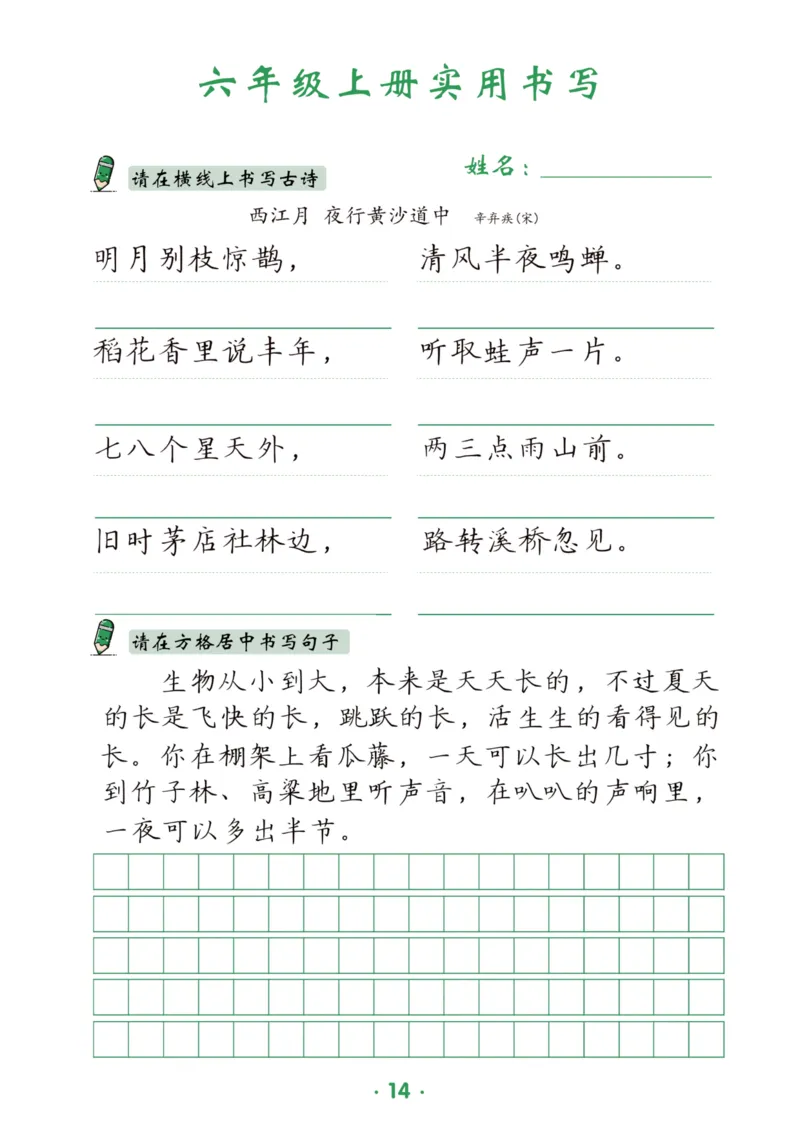 六年级上册实用书写
姓名：
请在横线上书写古诗
西江月 夜行黄沙道中 辛弃疾(宋)
明月别枝惊鹊， 清风半夜鸣蝉。
稻花香里说丰年， 听取蛙声一片。
七八个星天外， 两三点雨山前。
旧时茅店社林边， 路转溪桥忽见。
请在方格居中书写句子
生物从小到大，本来是天天长的，不过夏天
的长是飞快的长，跳跃的长，活生生的看得见的
长。你在棚架上看瓜藤，一天可以长出几寸；你
到竹子林、高粱地里听声音，在叭叭的声响里，
一夜可以多出半节。
· 14 ·